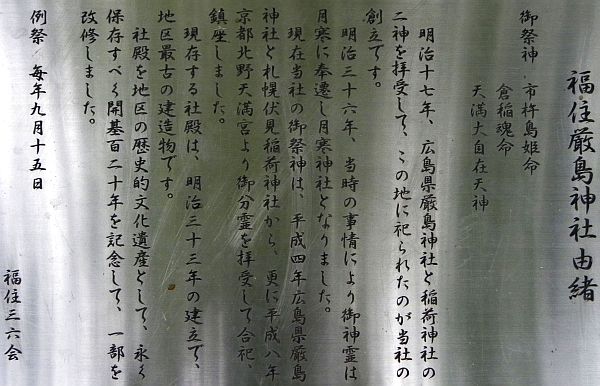 福住厳島神社由緒
御祭神 市杵島姫命
倉稲魂命
天満大自在天神
明治十七年、広島県厳島神社と稲荷神社の
二神を拝受して、この地に祀られたのが当社の
創立です。
明治三十六年、当時の事情により御神霊は
月寒に奉遷し月寒神社となりました。
現在当社の御祭神は、平成四年広島県厳島
神社と札幌伏見稲荷神社から、更に平成八年
京都北野天満宮より御分霊を拝受して合祀、
鎮座しました。
現存する社殿は、明治三十三年の建立で、
地区最古の建造物です。
社殿を地区の歴史的文化遺産として、永く
保存すべく開基百二十年を記念して、一部を
改修しました。
例祭 毎年九月十五日
福住三六会